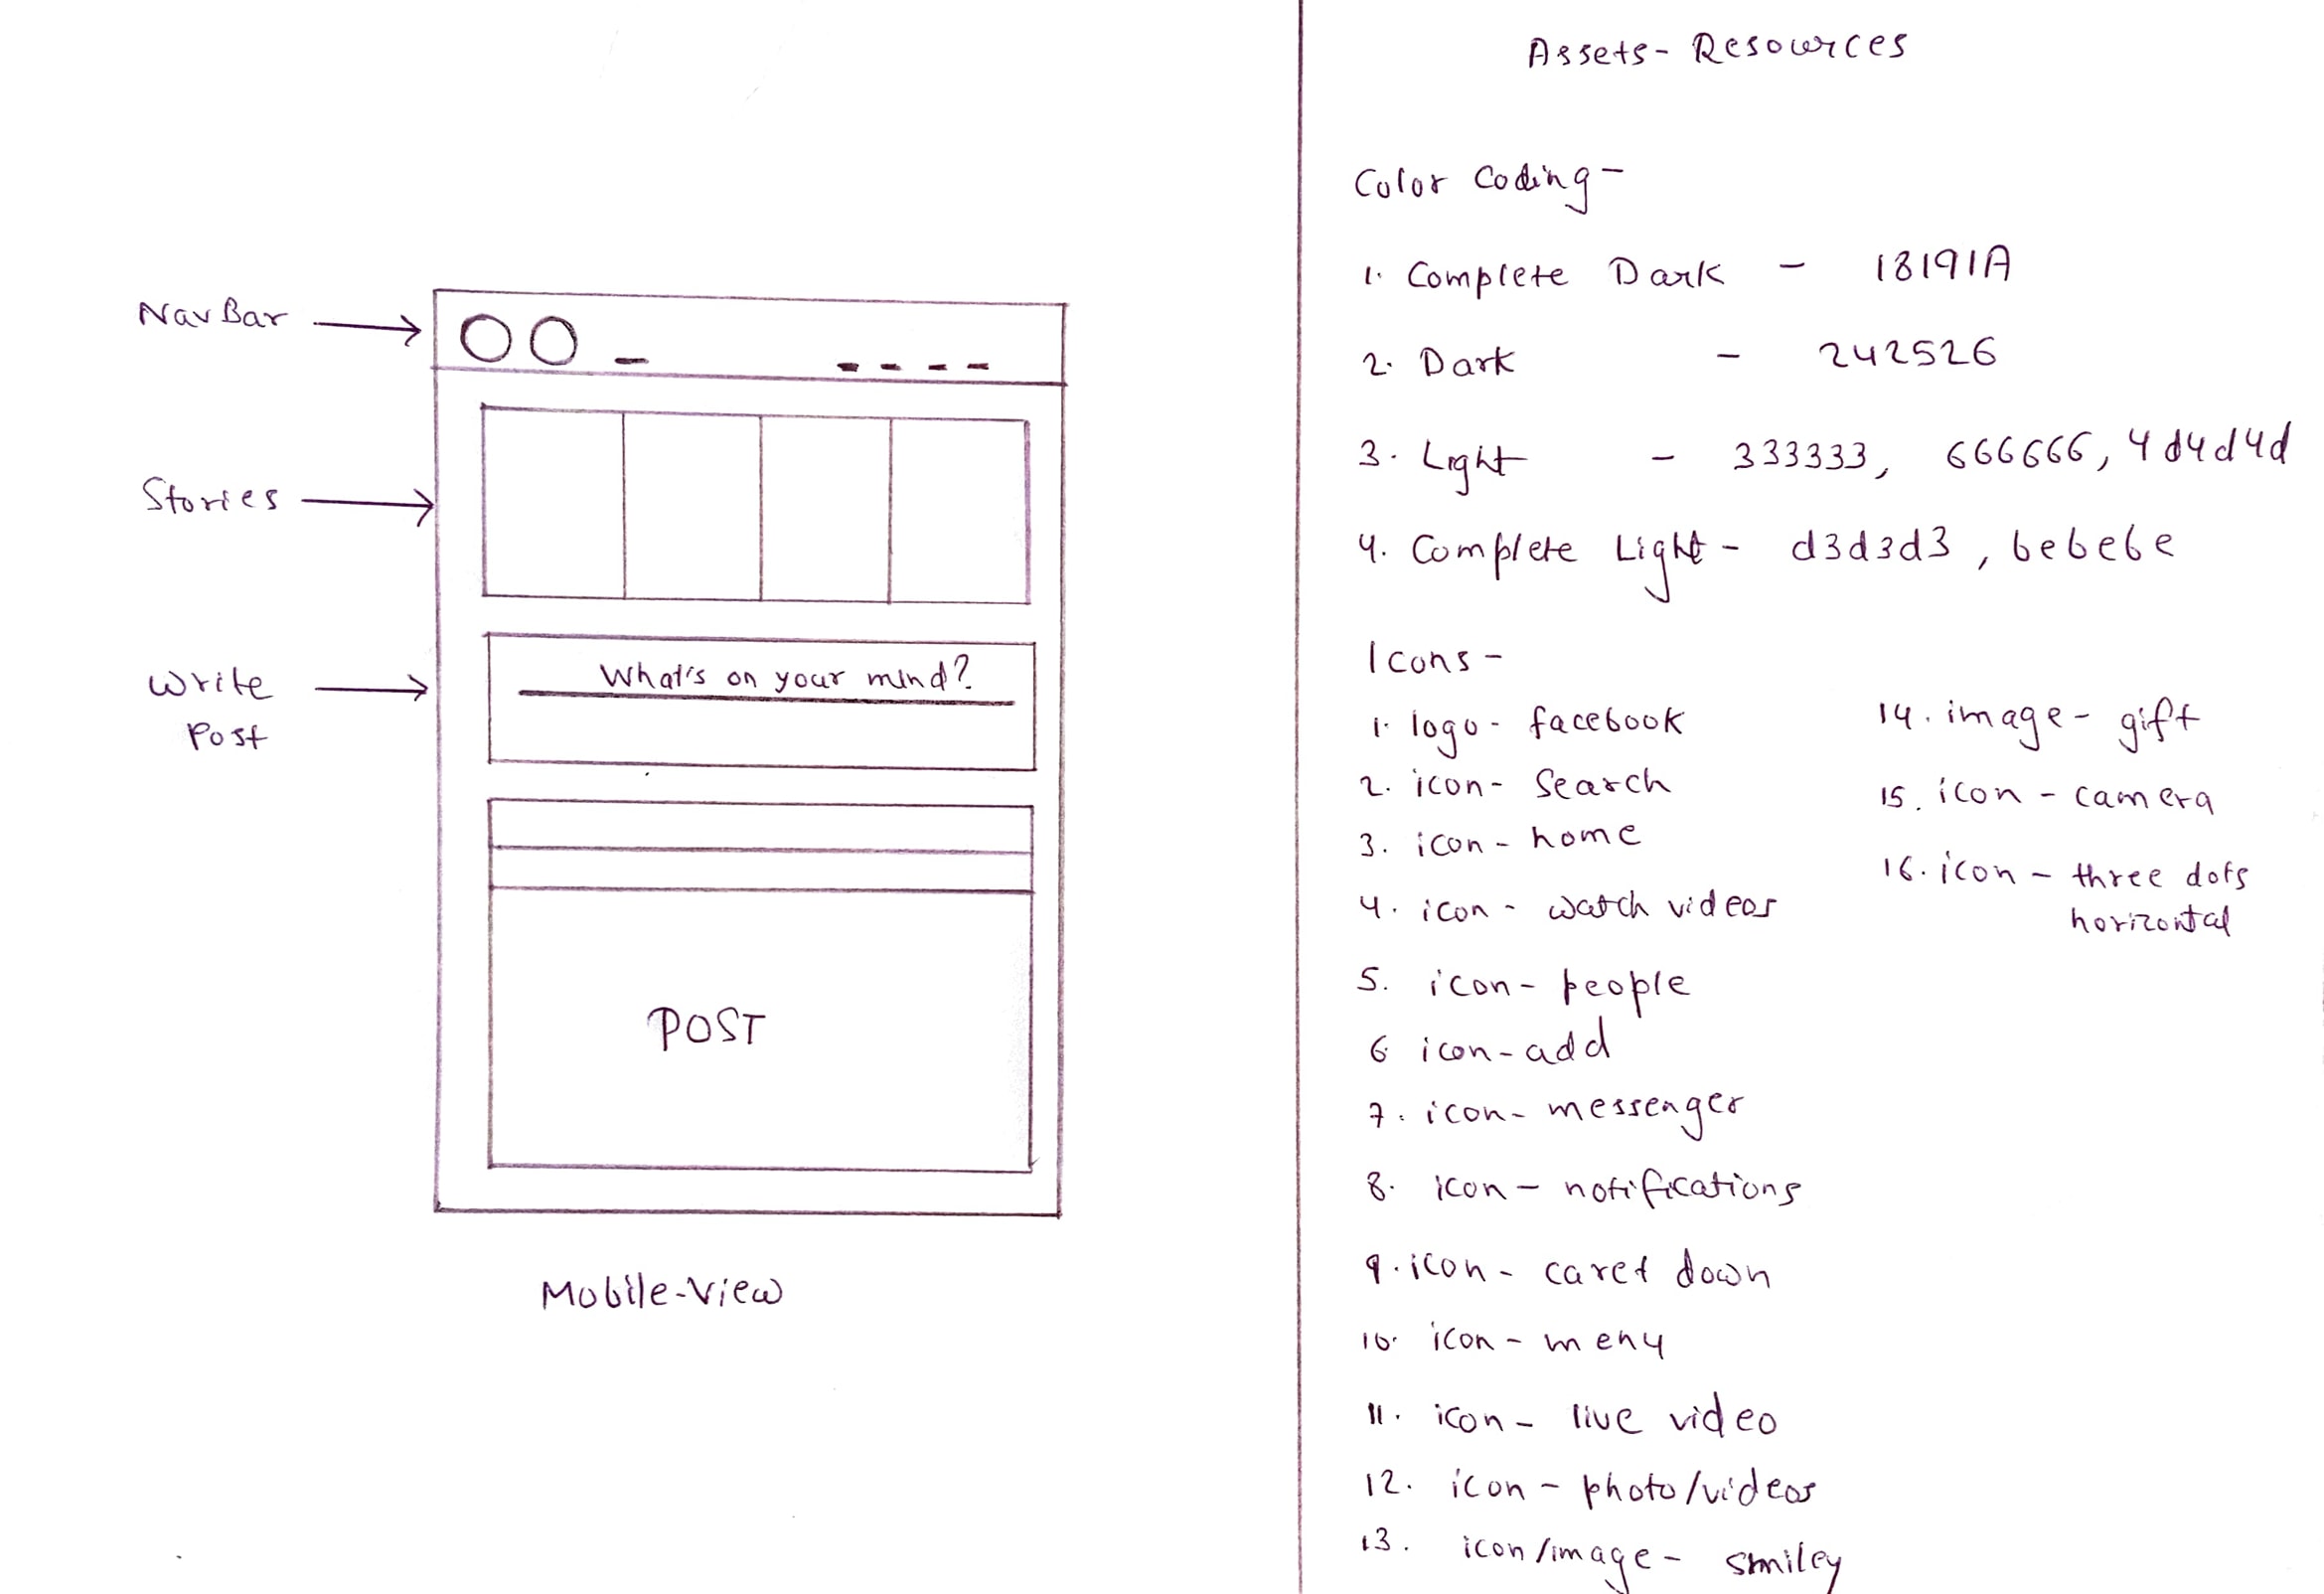 NavBar
Stories
Write
Post
What's on your mind?
POST
Mobile-View
Assets- Resources
Color Coding-
1. Complete Dark - 18191A
2. Dark - 242526
3. Light - 333333, 666666, 4d4d4d
4. Complete Light - d3d3d3, bebebe
Icons-
1. logo - facebook
2. icon- Search
3. icon - home
4. icon - watch videos
5. icon - people
6 icon-add
7. icon- messenger
8. icon - notifications
9. icon - caret down
10. icon - menu
11. icon - live video
12. icon - photo/videos
13. icon/image - smiley
14. image - gift
15. icon - camera
16. icon - three dots
horizontal